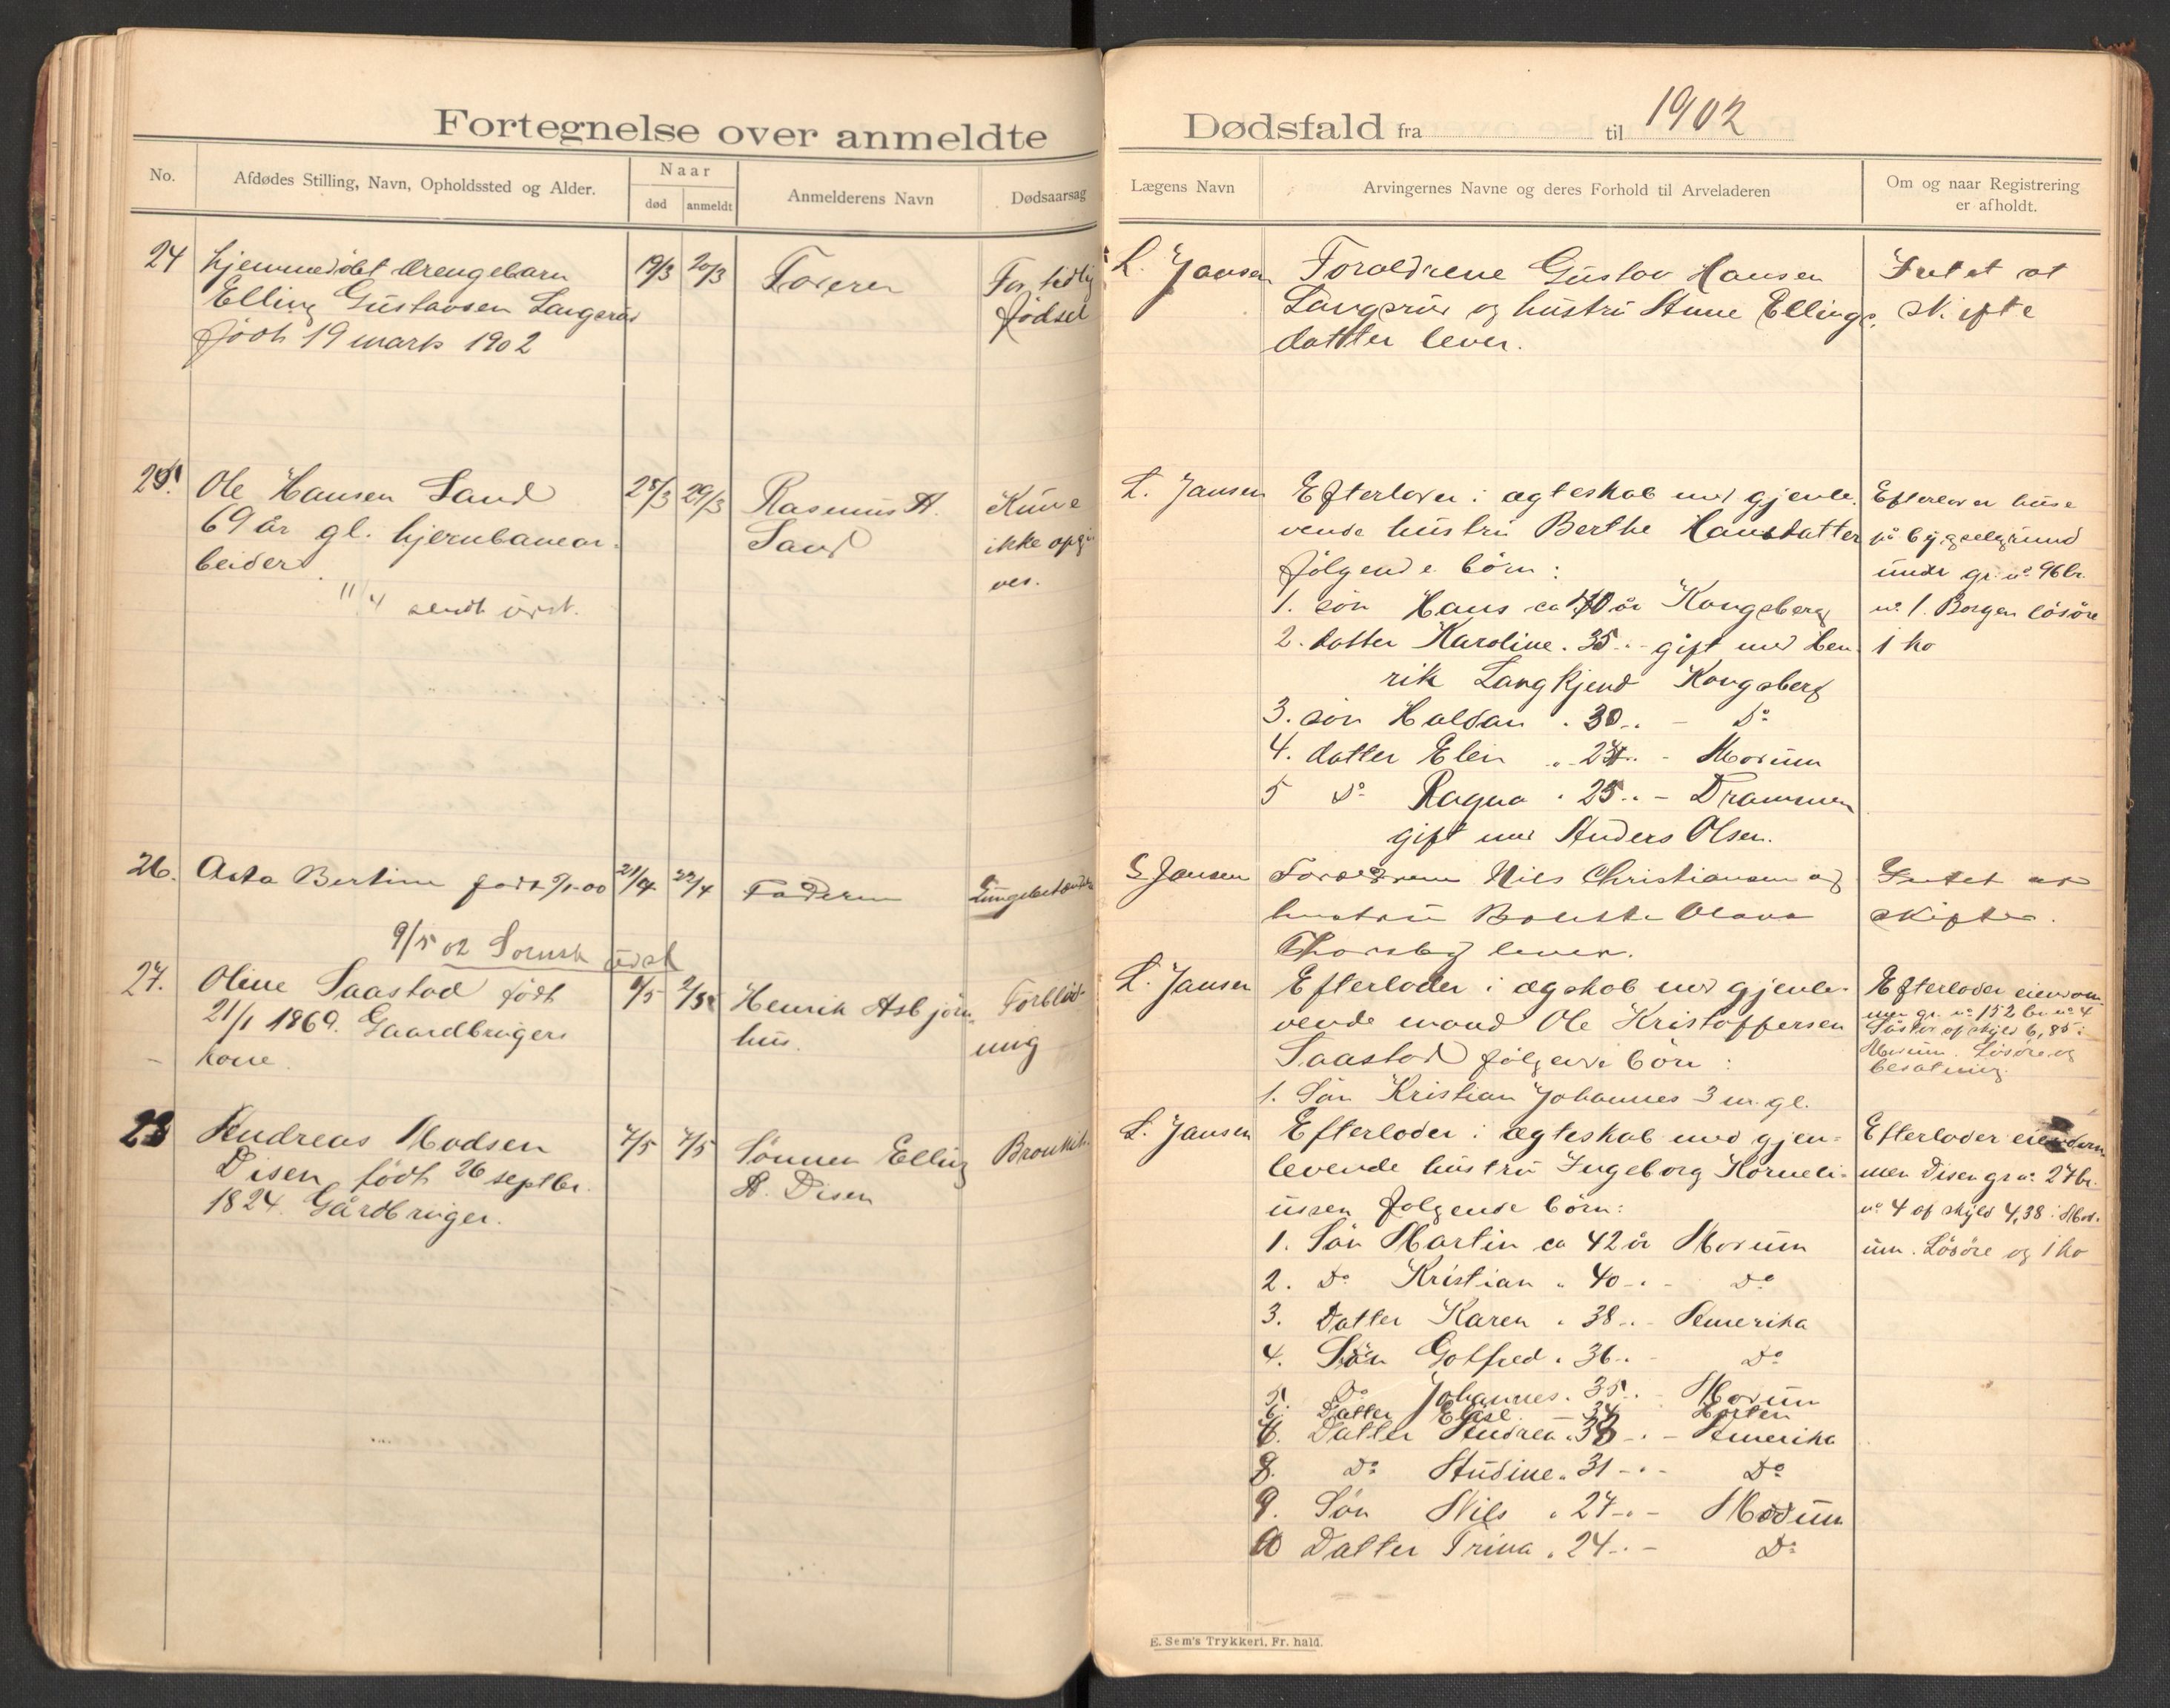 Fortegnelse over anmeldte
No.
Afdødes Stilling, Navn, Opholdssted og Alder.
Naar
død
anmeldt
Anmelderens Navn
Dødsaarsag
24
hjemmedöbt drengebarn
Elling Gustavsen Langerud
födt 19 marts 1902
19/3
20/3
Faderen
For tidlig
födsel
25.
Ole Hansen Sand
69 år gl. hjernbanear-
beider
11/4 sendt
28/3
29/3
Rasmus A.
Sand
Kune
ikke opgi
ves.
26.
Asta Bertine född 5/1-00
21/4
22/4
Faderen
Lungebetændelse
9/5 02 Sornsk udst
27.
Oline Saastad födt
21/1 1869. Gaardbrugers
kone.
1/5
2/5
Henrik Asbjörn-
hus.
Forblöd-
ning
28
Andreas Madsen
Disen födt 26 septbr.
1824. Gårdbruger.
4/5
4/5
Sönnen Elling
A. Disen
Bronkit.
Dødsfald fra til 1902
Lægens Navn
Arvingernes Navne og deres Forhold til Arveladeren
Om og naar Registrering
er afholdt.
L. Jansen
Foraeldrene Gustav Hansen
Langerud og hustru Anne Ellings-
datter lever.
Intet at
skifte
L. Jansen
Efterlader i ægteskab med gjenle-
vende hustru Berthe Hansdatter
fölgende börn:
1. sön Hans ca 40 år Kongsberg
2. datter Karoline . 35 .. - gift med Hen-
rik Langkjend Kongsberg
3. sön Haldan . 30 .. - Do
4. datter Elen .. - Modum
5 Do Ragna . 25 .. - Drammen
gift med Anders Olsen.
Efterlader huse
på bygselgrund
under gr. no 96 br.
no 1. Borgen lösöre
1 ko
L Jansen
Foraeldrene Nils Christiansen og
hustru Olava
Thorsby lever.
Intet at
skifte.
L. Jansen
Efterlader i ægskab med gjenle-
vende mand Ole Kristoffersen
Saastad fölgende börn:
1. Sön Kristian Johannes 3 m. gl.
Efterlader eiendom-
men gr. no 152 br no 4
Såstad af skyld 6,85 i
Modum. Lösöre og
besætning.
L. Jansen
Efterlader i ægteskab med gjen-
levende hustru Ingeborg Korneli-
ussen fölgende börn:
1. Sön Martin ca 42 år Modum
2. Do Kristian . 40 - . - Do
3. Datter Karen . 38 - . - Amerika
4. Sön Gotfred . 36 . - Do
5. Do Johannes . 35 . - Modum
6. Datter Elise - 34 Horten
7. Datter Andrea . 33 - . - Amerika
8. Do Andine . 31 - . - Do
9. Sön Nils . 27 - . - Modum
10 Datter Trina . 24 - . - Do
Efterlader eiendom-
men Disen gr no 27 br.
no 4 af skyld 4,38 i Mod-
um. Lösöre og 1 ko
E. Sem's Trykkeri, Fr. hald.